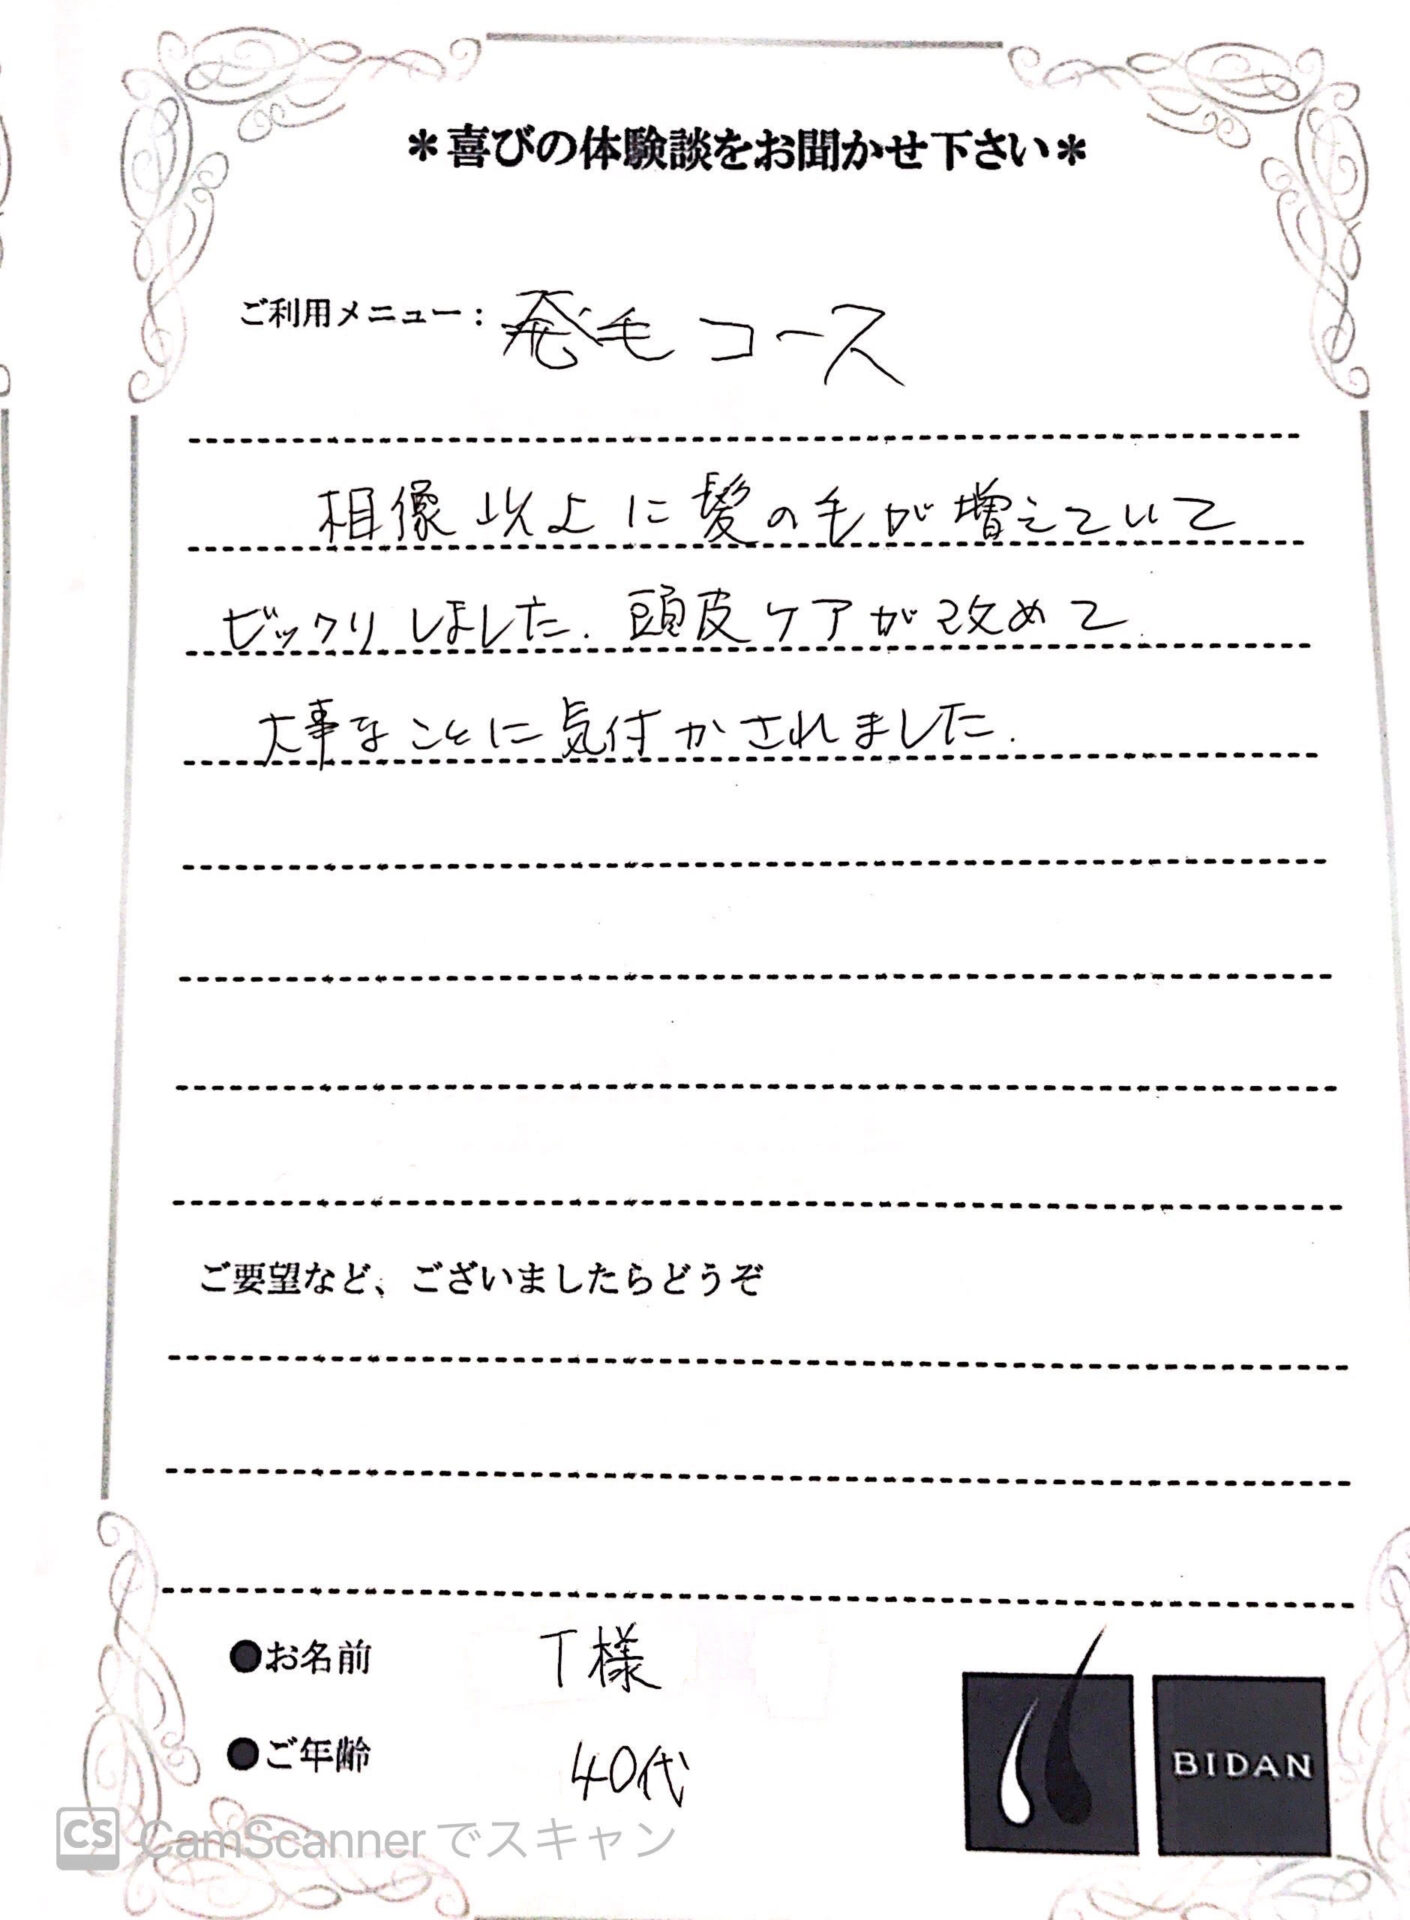 ＊喜びの体験談をお聞かせ下さい＊
ご利用メニュー：発毛コース
相像以上に髪の毛が増えていて
ビックリしました．頭皮ケアが改めて
大事なことに気付かされました．
ご要望など、ございましたらどうぞ
●お名前　T様
●ご年齢　40代
BIDAN
CS CamScannerでスキャン